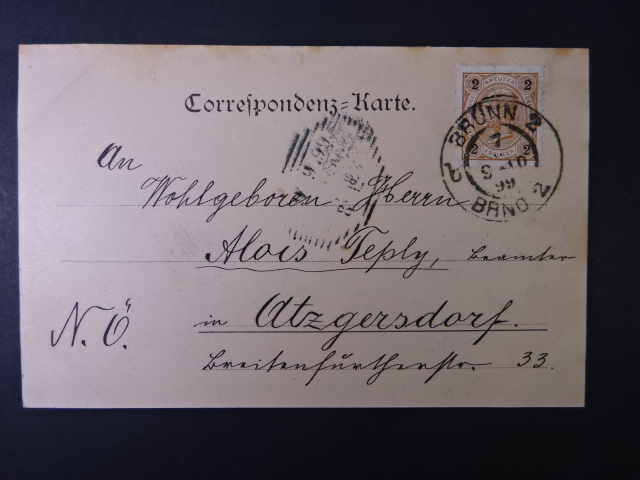 Correspondenz-Karte.
2 KREUZER 2
2 2
BRÜNN 2
7
9 10
99
2 BRNO 2
An
Wohlgeboren Herrn
Alois Teply, Beamter
in Atzgersdorf.
N. Ö.
Breitenfurtherstr. 33.